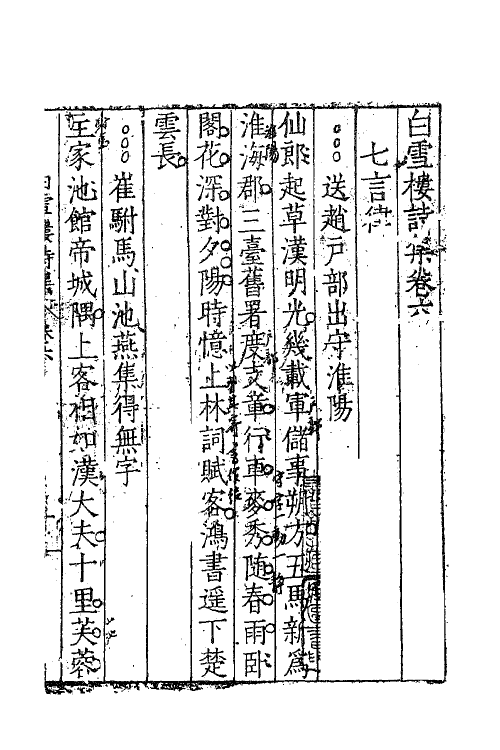 白雪樓詩集卷六
七言律
送趙戶部出守淮陽
仙郎起草漢明光幾載軍儲事朔方五馬新爲
淮海郡三臺舊署度支章行車麥秀随春雨卧
閣花深對夕陽時憶上林詞賦客鴻書遥下楚
雲長
崔駙馬山池燕集得無字
王家池館帝城隅上客相如漢大夫十里芙蓉